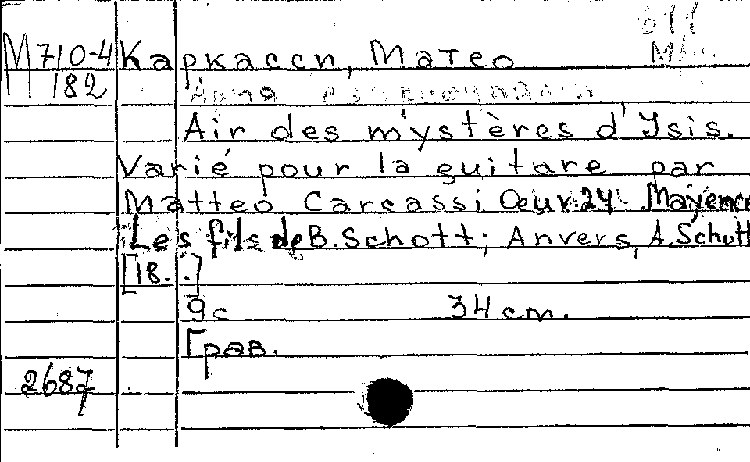 М710-4 Каркасси, Матео
182
Air des mystères d'Isis.
Varié pour la guitare par
Matteo Carcassi Œuv. 24 Mayence
Les fils de B. Schott; Anvers, A. Schott
[18..]
9с 34 см.
Грав.
2687